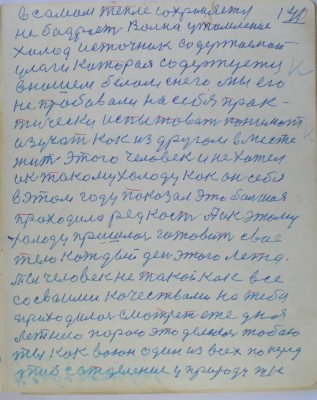 в самом тепле сохраняется
не бодрост Волна утомление
холод источник содержательной
влаги которая содержется
внашем белом снего мы его
не пробовали на себя прак-
тически испытоват понимат
изучат как из другом вместе
жит этого человек и не хотел
ик такому холоду как он себя
в этом году показал это большая
проходила редкост А как этому
холоду пришлос готовит свое
тело каждый ден этого лета.
Ты человек не такой как все
со своими качествами на тебя
приходилос смотрет оже дня
летнею порою это делалос тобою
ты как воин один из всех поперед
природы